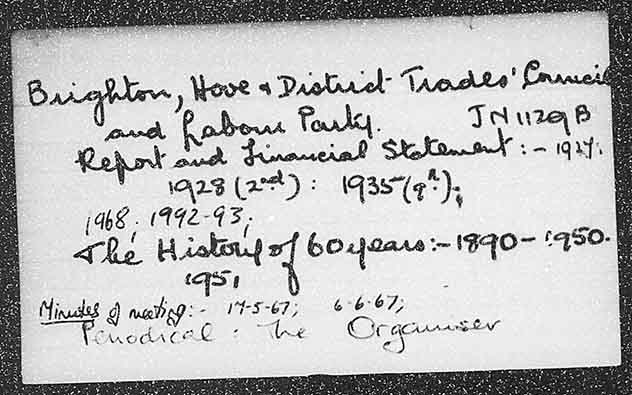 Brighton, Hove & District Trades' Council
and Labour Party. JN1129B
Report and Financial Statement:- 1927:
1928 (2nd): 1935 (9th);
1968; 1992-93;
The History of 60 years:- 1890 - 1950.
1951
Minutes of meeting:- 17-5-67; 6-6-67;
Periodical: The Organiser